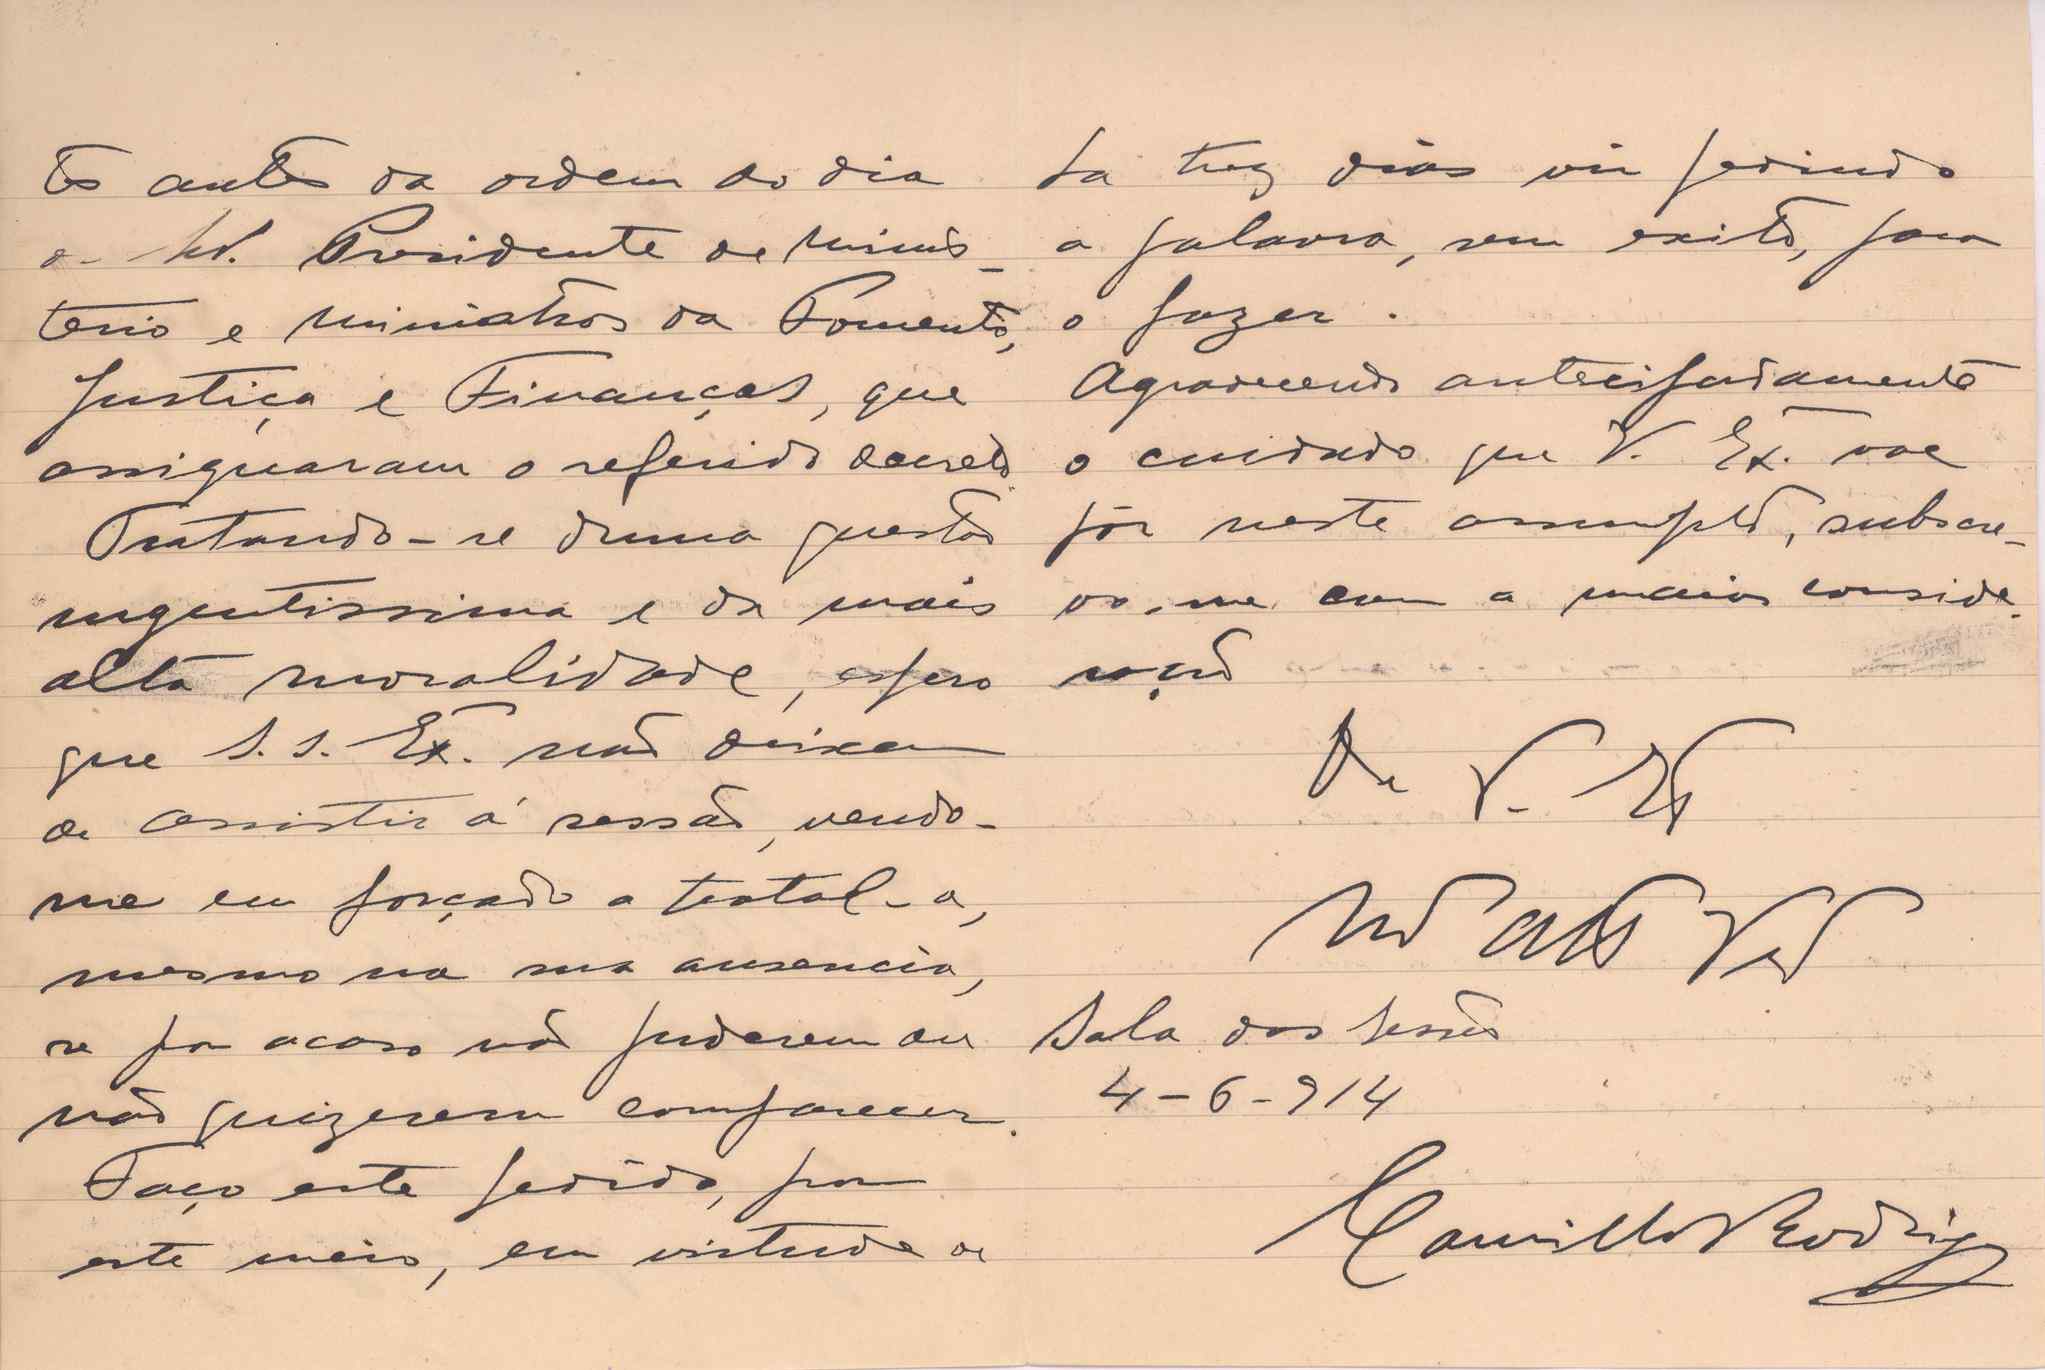 tes antes da ordem do dia
o Sr. Presidente de Minis-
terio e Ministros da Fomento,
Justiça e Finanças, que
assignaram o referido decreto.
Tratando-se duma questão
urgentissima e da mais
alta moralidade, espero
que S. S. Ex. não deixem
de assistir á sessão, vendo-
me eu forçado a tratal-a,
mesmo na sua ausencia,
se por acaso não puderem ou
não quizerem comparecer.
Faço este pedido, por
este meio, em virtude de
ha trez dias vir pedindo
a palavra, sem exito, para
o fazer.
Agradecendo antecipadamente
o cuidado que V. Ex. vae
pôr neste assumpto, subscre-
vo-me com a maior conside-
ração
De V. Ex
Mto Atto Vor
Sala das Sessões
4-6-914
Camillo Rodrigues